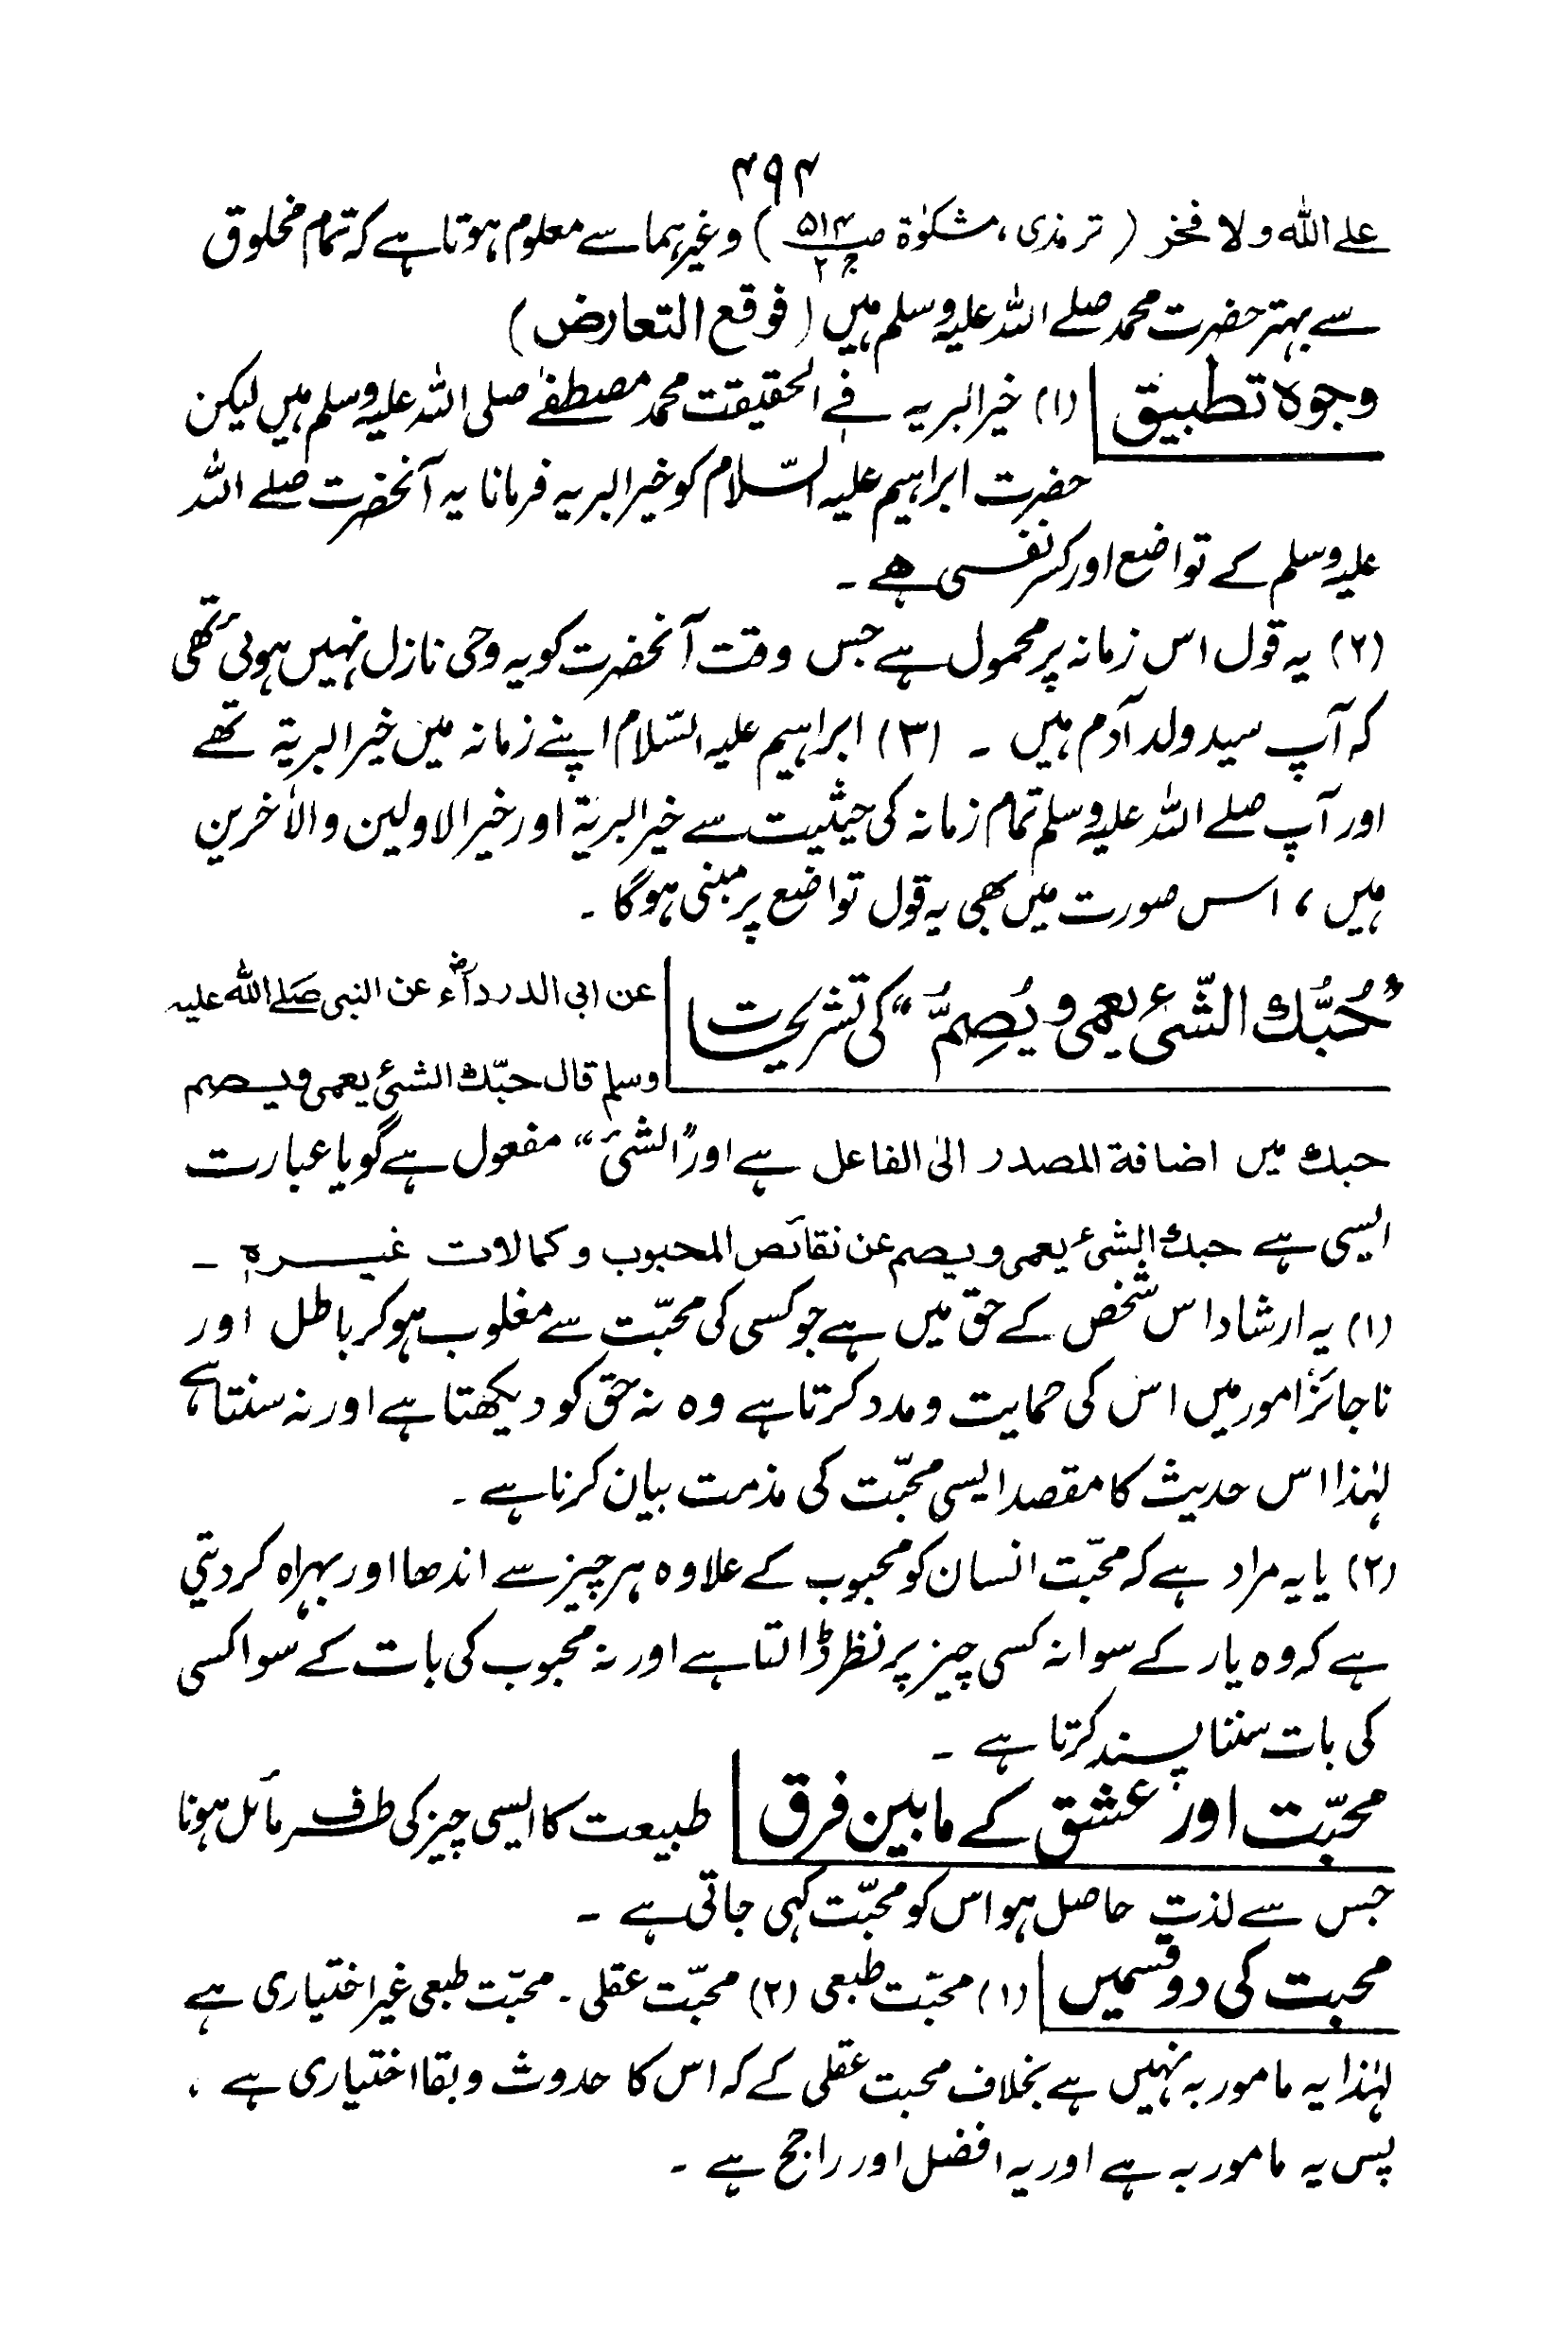 ۴۹۴
علے اللہ ولا فخر ( ترمذی ، مشکوٰۃ ص ۵۱۴ ج ۲ ) وغیرہما سے معلوم ہوتا ہے کہ تمام مخلوق
سے بہتر حضرت محمد صلے اللہ علیہ وسلم ہیں ( فوقع التعارض )
وجوہ تطبیق (۱) خیر البریہ فے الحقیقت محمد مصطفےٰ صلی اللہ علیہ وسلم ہیں لیکن
حضرت ابراہیم علیہ السّلام کو خیر البریہ فرمانا یہ آنحضرت صلے اللہ
علیہ وسلم کے تواضع اور کسر نفسی ہے ۔
(۲) یہ قول اس زمانہ پر محمول ہے جس وقت آنحضرت کو یہ وحی نازل نہیں ہوئی تھی
کہ آپ سید ولد آدم ہیں ۔ (۳) ابراہیم علیہ السّلام اپنے زمانہ میں خیر البریۃ تھے
اور آپ صلے اللہ علیہ وسلم تمام زمانہ کی حیثیت سے خیر البریۃ اور خیر الاولین والاٰخرین
ہیں ، اس صورت میں بھی یہ قول تواضع پر مبنی ہوگا ۔
”حُبُّك الشّیٔ یعمی ویُصِمُّ“ کی تشریحات عن ابی الدرداءؓ عن النبی صَلے اللہ علیہ
وسلم قال حبّك الشیٔ یعمی ویصم
حبك میں اضافۃ المصدر الی الفاعل ہے اور ”الشیٔ“ مفعول ہے گویا عبارت
ایسی ہے حبك الشیٔ یعمی ویصم عن نقائص المحبوب وکمالات غیرہٖ ۔
(۱) یہ ارشاد اس شخص کے حق میں ہے جو کسی کی محبّت سے مغلوب ہوکر باطل اور
ناجائز امور میں اس کی حمایت ومدد کرتا ہے وہ نہ حق کو دیکھتا ہے اور نہ سنتا ہے
لہٰذا اس حدیث کا مقصد ایسی محبّت کی مذمت بیان کرنا ہے ۔
(۲) یا یہ مراد ہے کہ محبّت انسان کو محبوب کے علاوہ ہر چیز سے اندھا اور بہراہ کردیتی
ہے کہ وہ یار کے سوا نہ کسی چیز پر نظر ڈالتا ہے اور نہ محبوب کی بات کے سوا کسی
کی بات سننا پسند کرتا ہے ۔
محبّت اور عشق کے مابین فرق طبیعت کا ایسی چیز کی طرف مائل ہونا
جس سے لذت حاصل ہو اس کو محبّت کہی جاتی ہے ۔
محبت کی دو قسمیں (۱) محبّت طبعی (۲) محبّت عقلی ۔ محبّت طبعی غیر اختیاری ہے
لہٰذا یہ مامور بہ نہیں ہے بخلاف محبت عقلی کے کہ اس کا حدوث وبقا اختیاری ہے ،
پس یہ مامور بہ ہے اور یہ افضل اور راجح ہے ۔